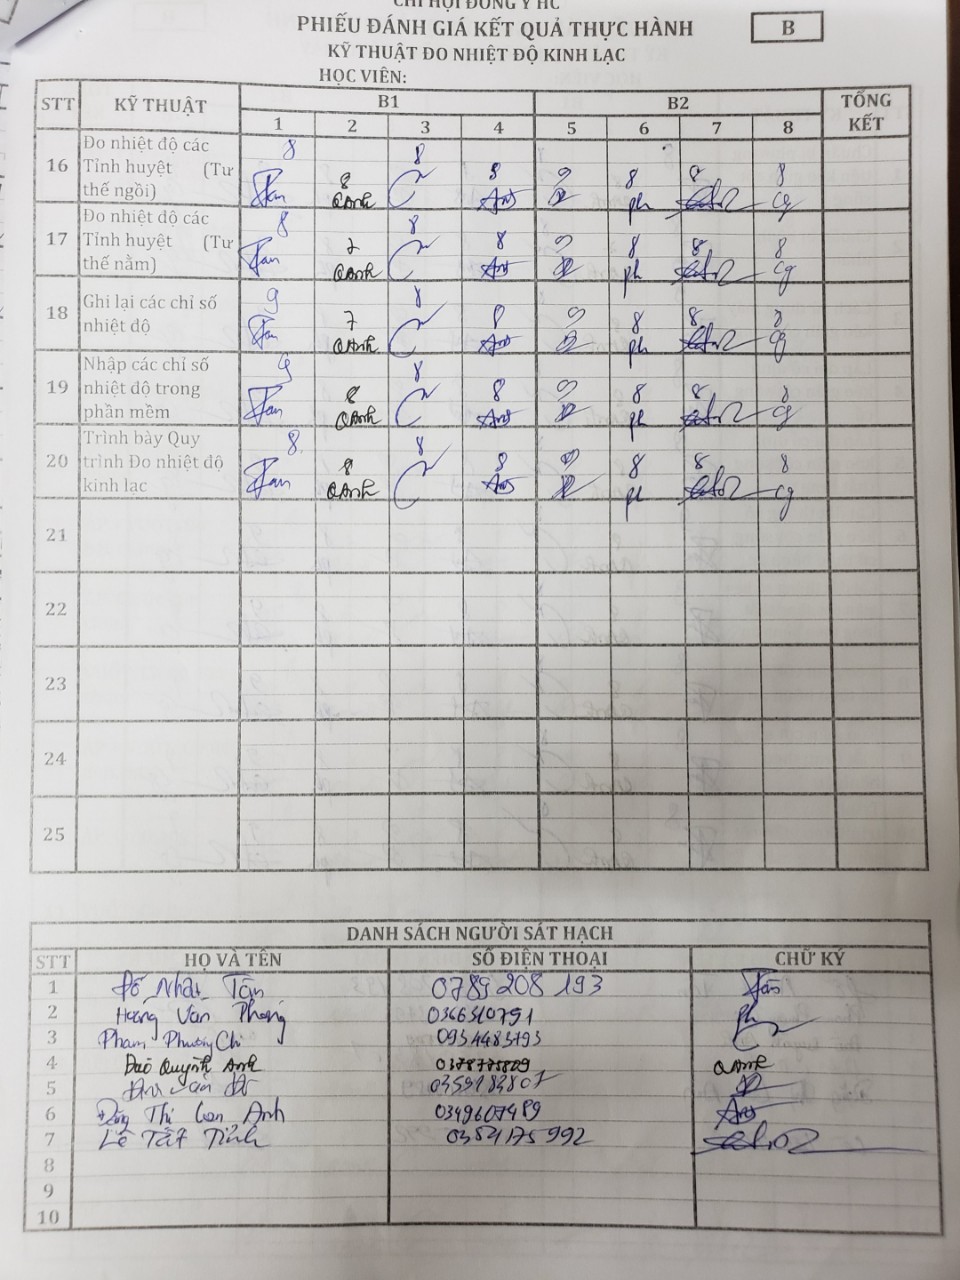 CHI HỘI ĐÔNG Y HC
PHIẾU ĐÁNH GIÁ KẾT QUẢ THỰC HÀNH
B
KỸ THUẬT ĐO NHIỆT ĐỘ KINH LẠC
HỌC VIÊN:
STT KỸ THUẬT B1 B2 TỔNG KẾT
1 2 3 4 5 6 7 8
16 Đo nhiệt độ các Tỉnh huyệt (Tư thế ngồi) 8 8 8 8 9 8 8 8
Tân QAnh Ans ph cg
17 Đo nhiệt độ các Tỉnh huyệt (Tư thế nằm) 8 7 8 8 9 8 8 8
Tân QAnh Ans ph cg
18 Ghi lại các chỉ số nhiệt độ 9 7 8 8 9 8 8 8
Tân QAnh Ans ph cg
19 Nhập các chỉ số nhiệt độ trong phần mềm 9 8 8 8 9 8 8 8
Tân QAnh Ans ph cg
20 Trình bày Quy trình Đo nhiệt độ kinh lạc 8 8 8 8 9 8 8 8
Tân QAnh Ans ph cg
21
22
23
24
25
DANH SÁCH NGƯỜI SÁT HẠCH
STT HỌ VÀ TÊN SỐ ĐIỆN THOẠI CHỮ KÝ
1 Đỗ Nhật Tân 0789208193 Tân
2 Hương Văn Phong 0366310791 ph
3 Phạm Phương Chi 0934483193
4 Đào Quỳnh Anh QAnh
5
6 Đặng Thị Lan Anh 0349607489 Ans
7 Lê Tất Tỉnh 0354175992
8
9
10